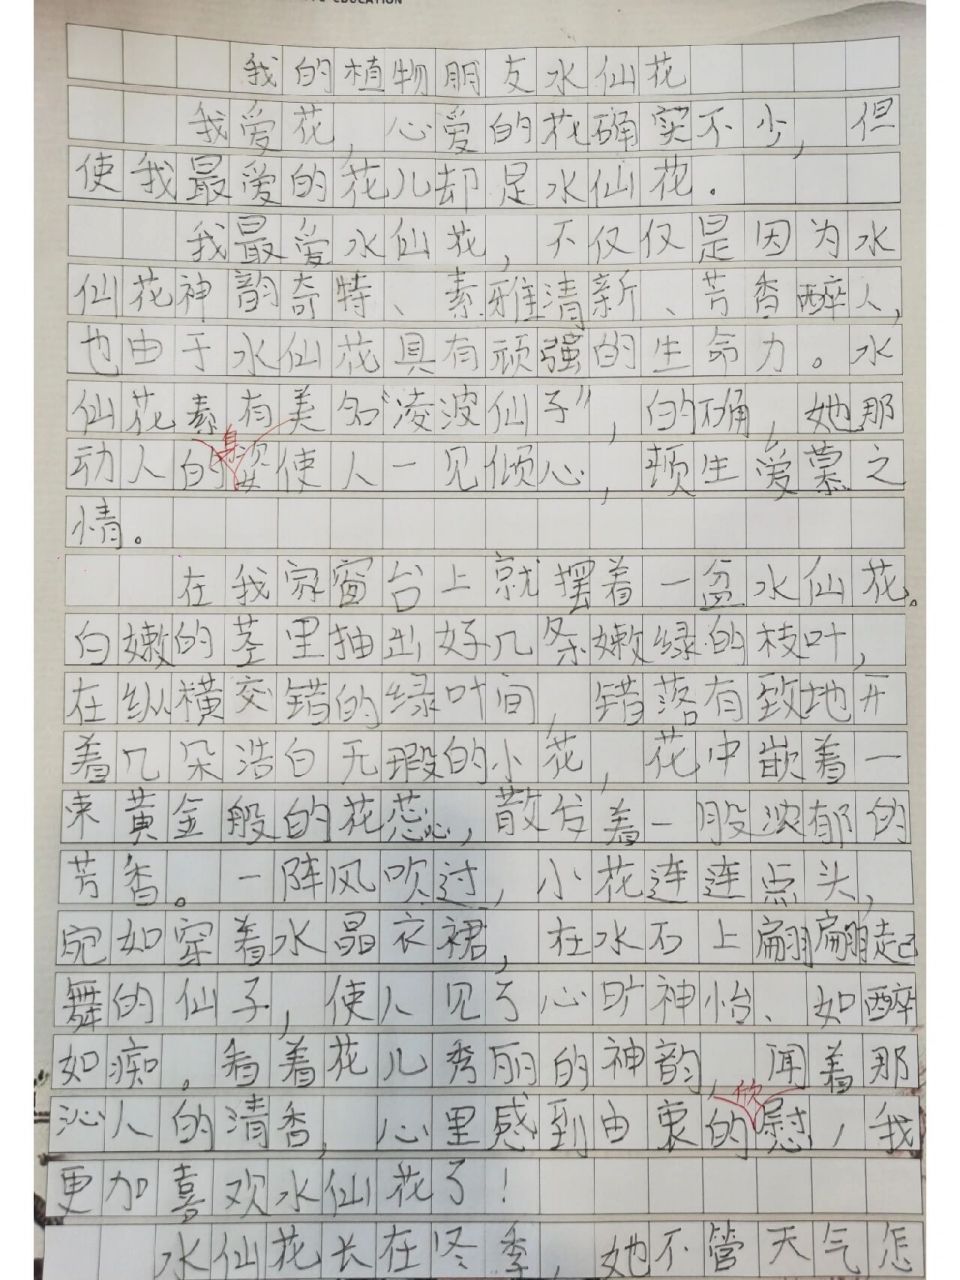 EDUCATION
我的植物朋友水仙花
我爱花，心爱的花确实不少，但
使我最爱的花儿却是水仙花．
我最爱水仙花，不仅仅是因为水
仙花神韵奇特、素雅清新、芳香醉人，
也由于水仙花具有顽强的生命力。水
仙花素有美名“凌波仙子”，的确，她那
动人的身姿使人一见倾心，顿生爱慕之
情。
在我家窗台上就摆着一盆水仙花。
白嫩的茎里抽出好几条嫩绿的枝叶，
在纵横交错的绿叶间，错落有致地开
着几朵浩白无瑕的小花，花中嵌着一
束黄金般的花蕊，散发着一股浓郁的
芳香。一阵风吹过，小花连连点头，
宛如穿着水晶衣裙，在水石上翩翩起
舞的仙子，使人见了心旷神怡、如醉
如痴．看着花儿秀丽的神韵，闻着那
沁人的清香，心里感到由衷的欣慰，我
更加喜欢水仙花了！
水仙花长在冬季，她不管天气怎